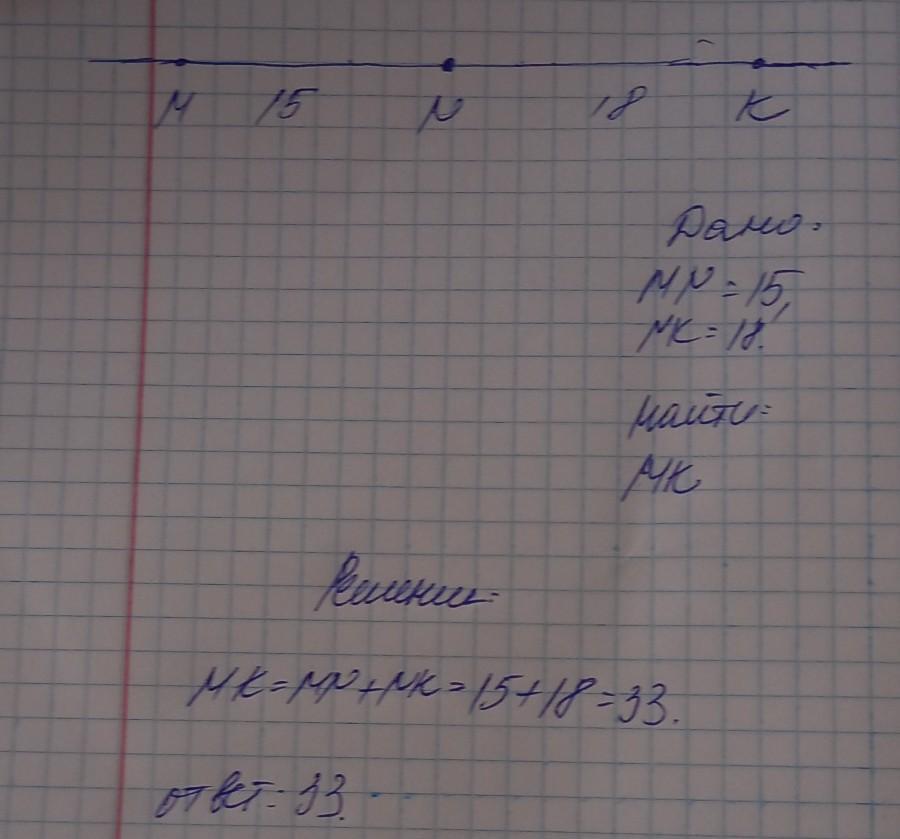 М 15 N 18 K
Дано:
MN = 15,
NK = 18.
Найти:
MK
Решение:
MK = MN + NK = 15 + 18 = 33.
Ответ: 33.